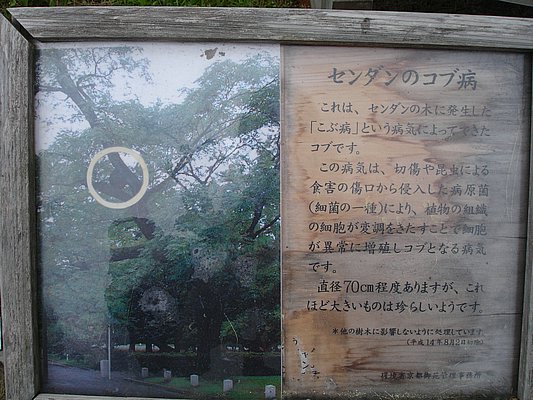 センダンのコブ病
これは、センダンの木に発生した
「こぶ病」という病気によってできた
コブです。
この病気は、切傷や昆虫による
食害の傷口から侵入した病原菌
(細菌の一種)により、植物の組織
の細胞が変調をきたすことで細胞
が異常に増殖しコブとなる病気
です。
直径70cm程度ありますが、これ
ほど大きいものは珍らしいようです。
*他の樹木に影響しないように処理しています。
(平成14年8月2日切除)
環境省京都御苑管理事務所